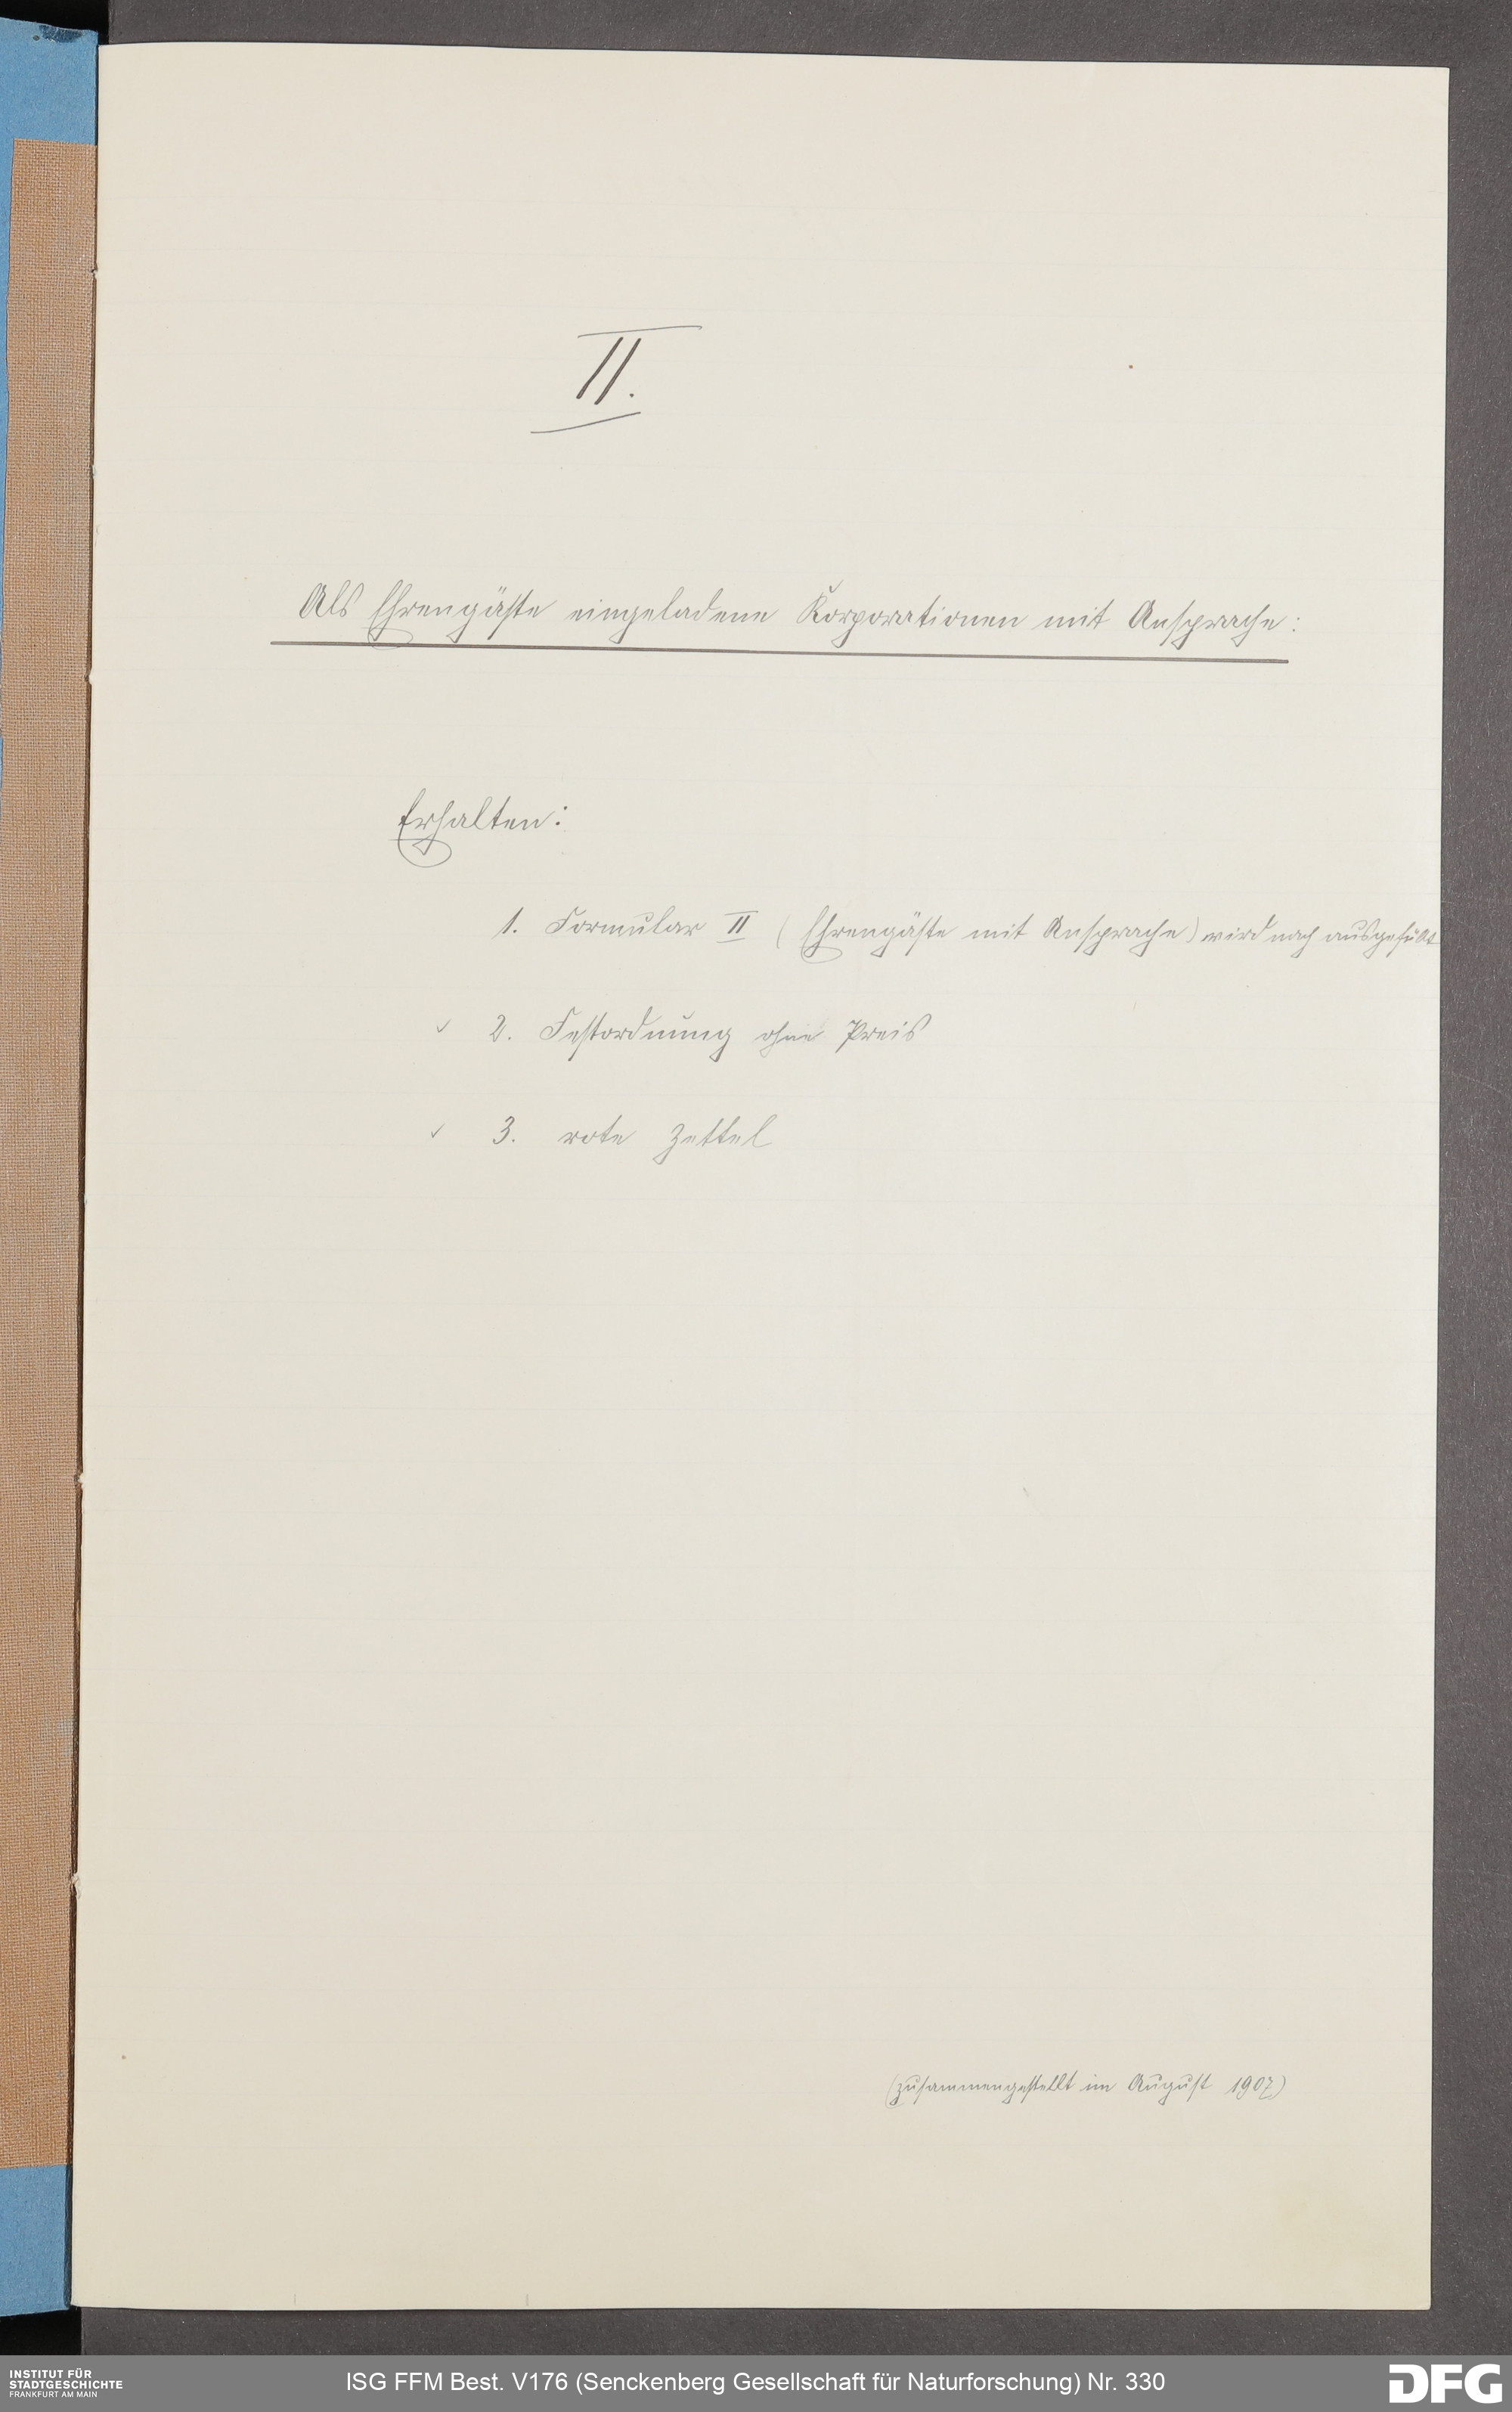 II.
Als Ehrengäste eingeladene Korporationen mit Ansprache:
Erhalten:
1. Formular II (Ehrengäste mit Ansprache) wird noch ausgefüllt
✓ 2. Festordnung ohne Preis
✓ 3. rote Zettel
(zusammengestellt im August 1907)
INSTITUT FÜR
STADTGESCHICHTE
FRANKFURT AM MAIN
ISG FFM Best. V176 (Senckenberg Gesellschaft für Naturforschung) Nr. 330
DFG